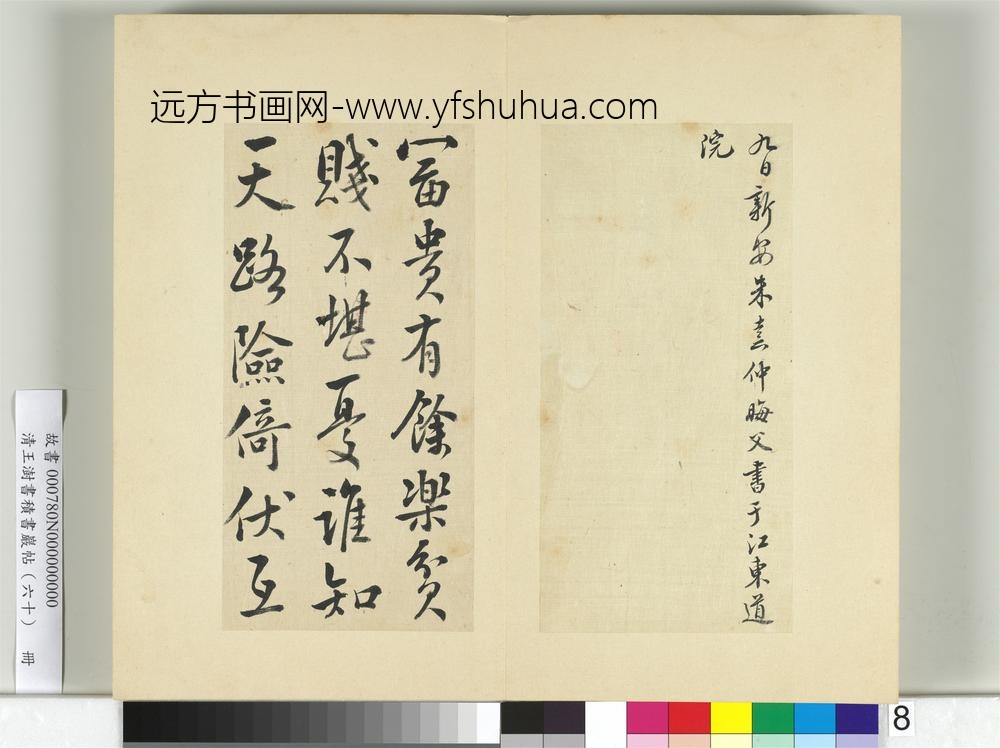 远方书画网-www.yfshuhua.com
九日新安朱熹仲晦父書于江東道
院
富貴有餘樂貧
賤不堪憂誰知
天路險倚伏互
故書 000780N000000000
清王澍書積書巖帖（六十） 冊
8